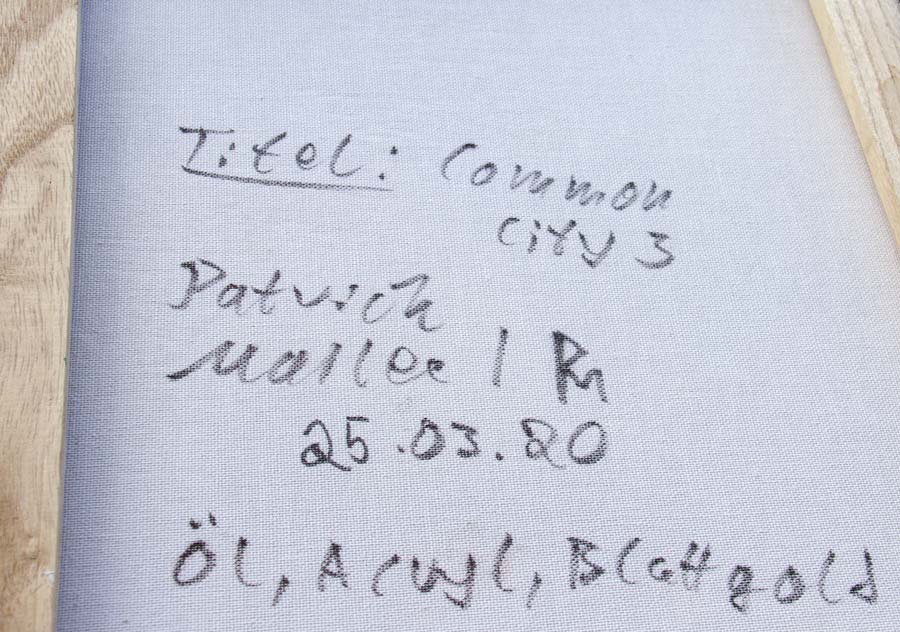 Titel: Common
City 3
Patrick
Mallee |
25.03.20
Öl, Acryl, Blattgold